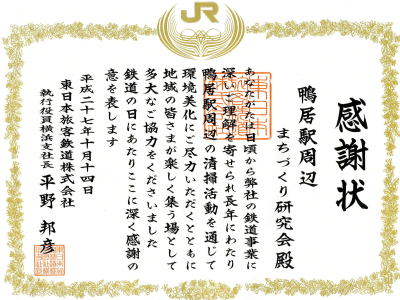 JR
感謝状
鴨居駅周辺
まちづくり研究会殿
あなたがたは日頃から弊社の鉄道事業に
深いご理解を寄せられ長年にわたり
鴨居駅周辺の清掃活動を通じて
環境美化にご尽力いただくとともに
地域の皆さまが楽しく集う場として
多大なご協力をくださいました
鉄道の日にあたりここに深く感謝の
意を表します
平成二十七年十月十四日
東日本旅客鉄道株式会社
執行役員横浜支社長 平野邦彦